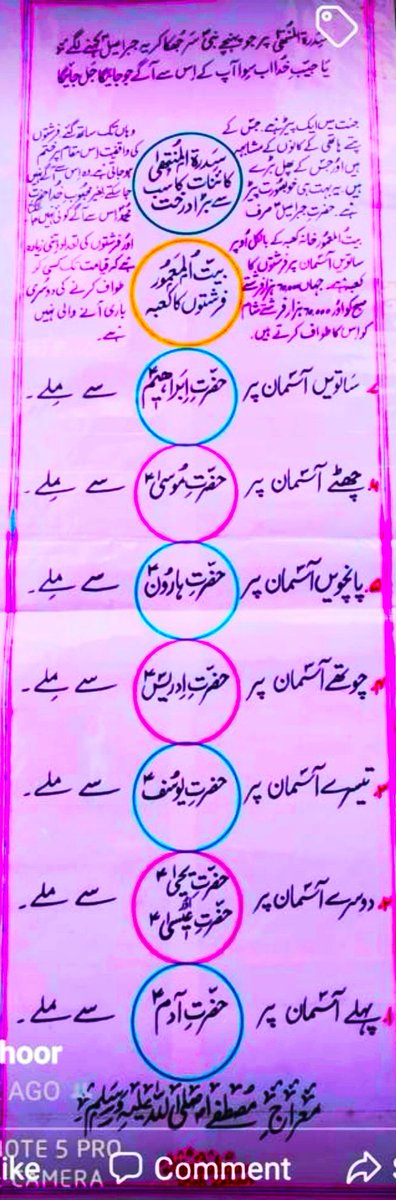 سدرۃ المنتھٰی پر جو پہنچے نبیؐ سر جھکا کر یہ جبرایلؑ کہنے لگے
یا حبیبِ خدا اب ہوا آپ کے اس سے آگے جو جائیگا جل جائیگا
جنت میں ایک پیڑ ہے جس کے
پتے ہاتھی کے کانوں کے مشابہ
ہیں اور جس کے پھل بڑے
ہیں یہ بہت ہی خوبصورت پیڑ
ہے۔ حضرت جبرایلؑ صرف
سدرۃ المنتھٰی
کائنات کا سب
سے بڑا درخت
وہاں تک ساتھ گئے فرشتوں
کی واقفیت اس مقام پر ختم
ہو جاتی ہے وہ اس سے آگے نہیں
جا سکتے بغیر محبوب خدا حضرت
محمدؐ اس سے آگے کوئی نہیں گیا
بیت المعمور خانہ کعبہ کے بالکل اوپر
ساتویں آسمان پر فرشتوں کا
کعبہ ہے۔ جہاں ۷۰،۰۰۰ ہزار فرشتے
صبح کو اور ۷۰،۰۰۰ ہزار فرشتے شام
کو اس کا طواف کرتے ہیں۔
بیت المعمور
فرشتوں کا کعبہ
اور فرشتوں کی تعداد اتنی زیادہ
ہے کہ قیامت تک کسی کی
طواف کرنے کی دوسری
باری آنے والی نہیں
ہے۔
۷ ساتویں آسمان پر حضرتِ ابراھیمؑ سے ملے۔
۶ چھٹے آسمان پر حضرتِ موسیٰؑ سے ملے۔
۵ پانچویں آسمان پر حضرتِ ہارونؑ سے ملے۔
۴ چوتھے آسمان پر حضرتِ ادریسؑ سے ملے۔
۳ تیسرے آسمان پر حضرتِ یوسفؑ سے ملے۔
۲ دوسرے آسمان پر حضرتِ یحیٰؑ حضرتِ عیسیٰؑ سے ملے۔
۱ پہلے آسمان پر حضرتِ آدمؑ سے ملے۔
معراجِ مصطفےٰ صلی اللہ علیہ وسلم
hoor
AGO
NOTE 5 PRO
CAMERA
ike
Comment
Sh